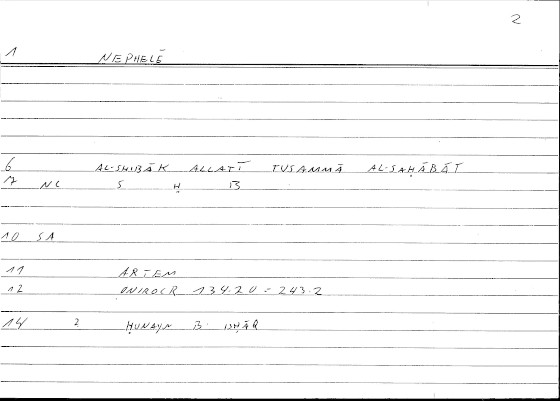 2
1 NEPHELĒ
6 AL-SHIBĀK ALLATĪ TUSAMMĀ AL-SAḤĀBĀT
7 NC S Ḥ B
10 SA
11 ARTEM
12 ONIROCR 134.20 = 243.2
14 2 ḤUNAYN B. ISḤĀQ